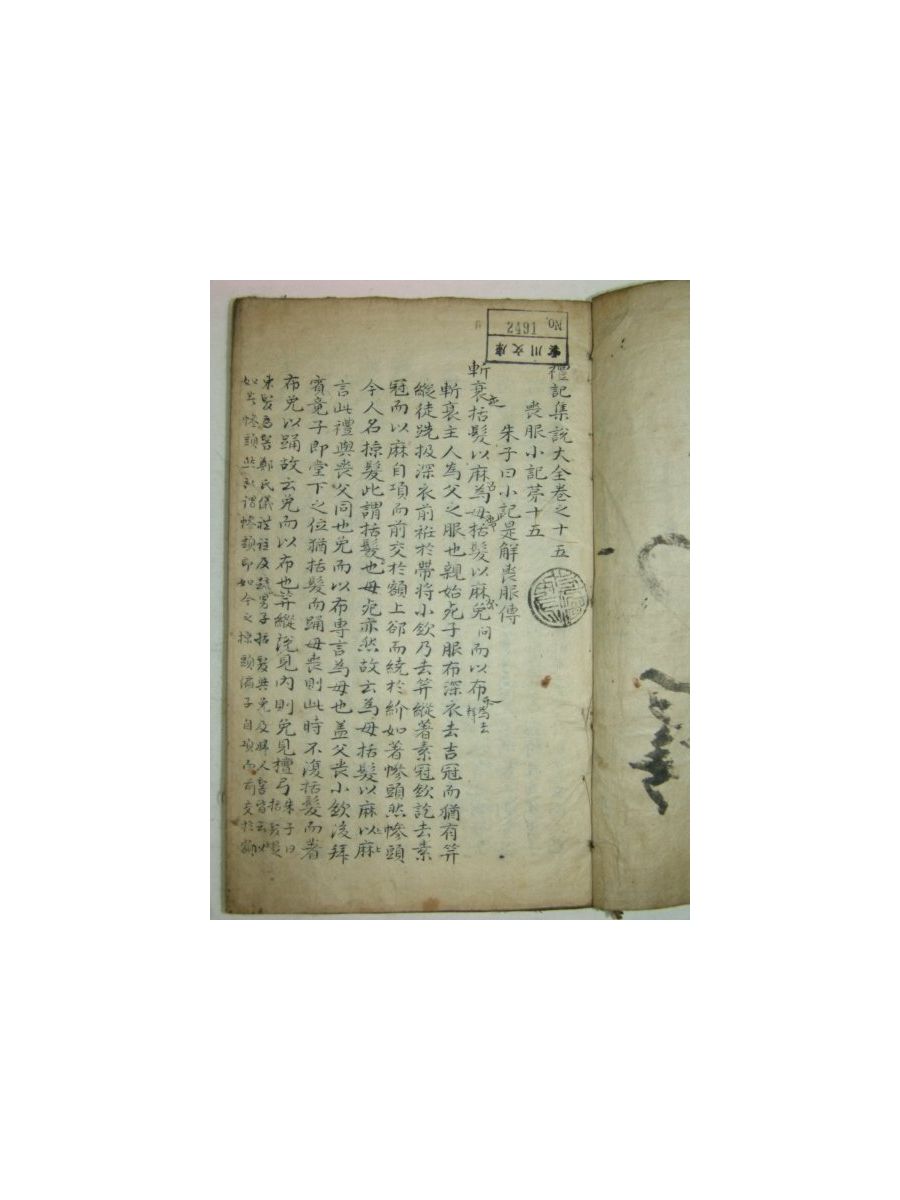 禮記集說大全卷之十五
喪服小記第十五
朱子曰小記是解喪服傳
斬衰括髮以麻為母括髮以麻免而以布
斬衰主人為父之服也親始死子服布深衣去吉冠而猶有笄
縰徒跣扱深衣前衽於帶將小斂乃去笄縰著素冠斂訖去素
冠而以麻自項而前交於額上郤而繞於紒如著幓頭然幓頭
今人名掠髮此謂括髮也母死亦然故云為母括髮以麻以麻
言此禮與喪父同也免而以布專言為母也盖父喪小斂後拜
賓竟子即堂下之位猶括髮而踊母喪則此時不復括髮而著
布免以踊故云免而以布也笄縰說見內則免見檀弓朱子曰括髮
束髮為髻鄭氏儀禮註及疏男子括髮與免及婦人髽皆云
如著幓頭然所謂幓頭即如今之掠頭編子自項而前交於額
No. 2491
文庫